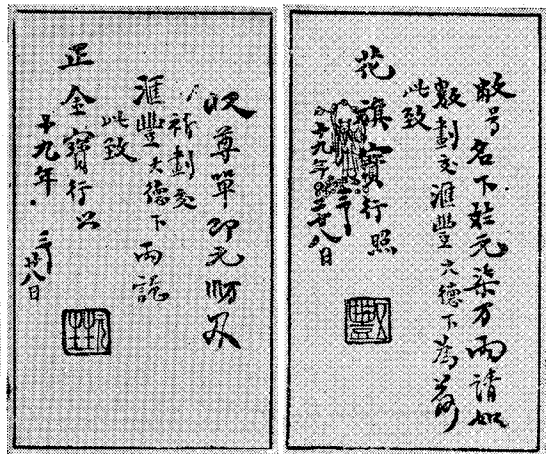 敝号名下 元柒万両請如
數劃交滙豐大德下為荷
此致
花旗寶行照
十九年 廿八日
收尊單即元
劃交
滙豐大德下両訖
此致
正金寶行
十九年 廿八日